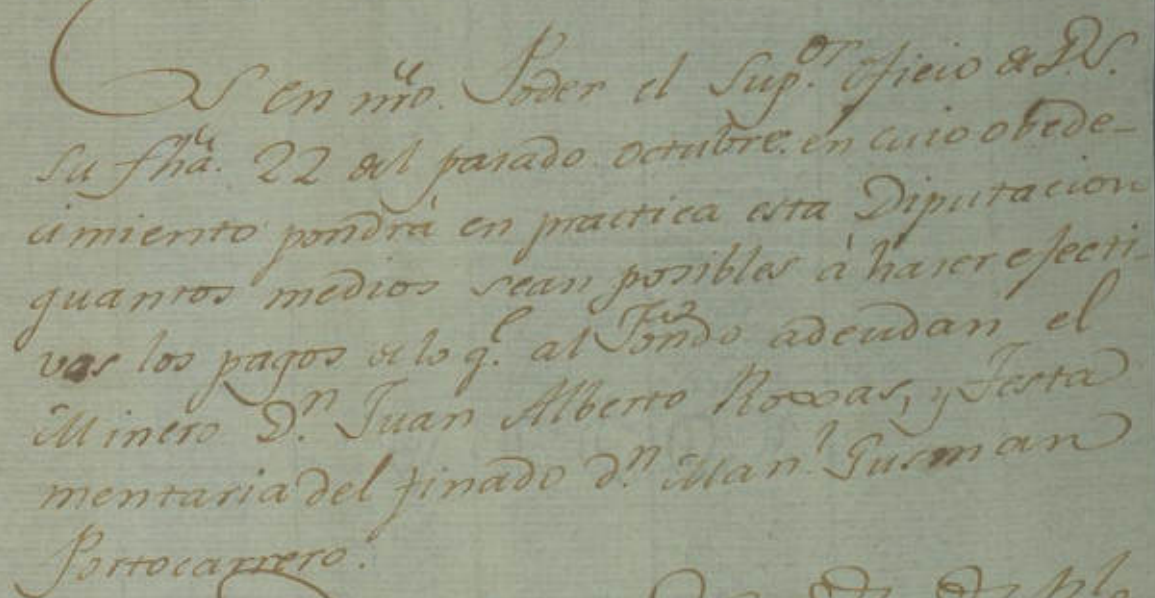 Es en nro. Poder el Sup.or oficio de V.S.
su fha. 22 del pasado octubre. en cuio obede-
cimiento pondrá en practica esta Diputacion
quantos medios sean posibles á haser efecti-
vas los pagos de lo q.e al Fondo adeudan el
Minero D.n Juan Alberto Roxas, y Testa
mentaria del finado d.n Man.l Gusman
Portocarrero.